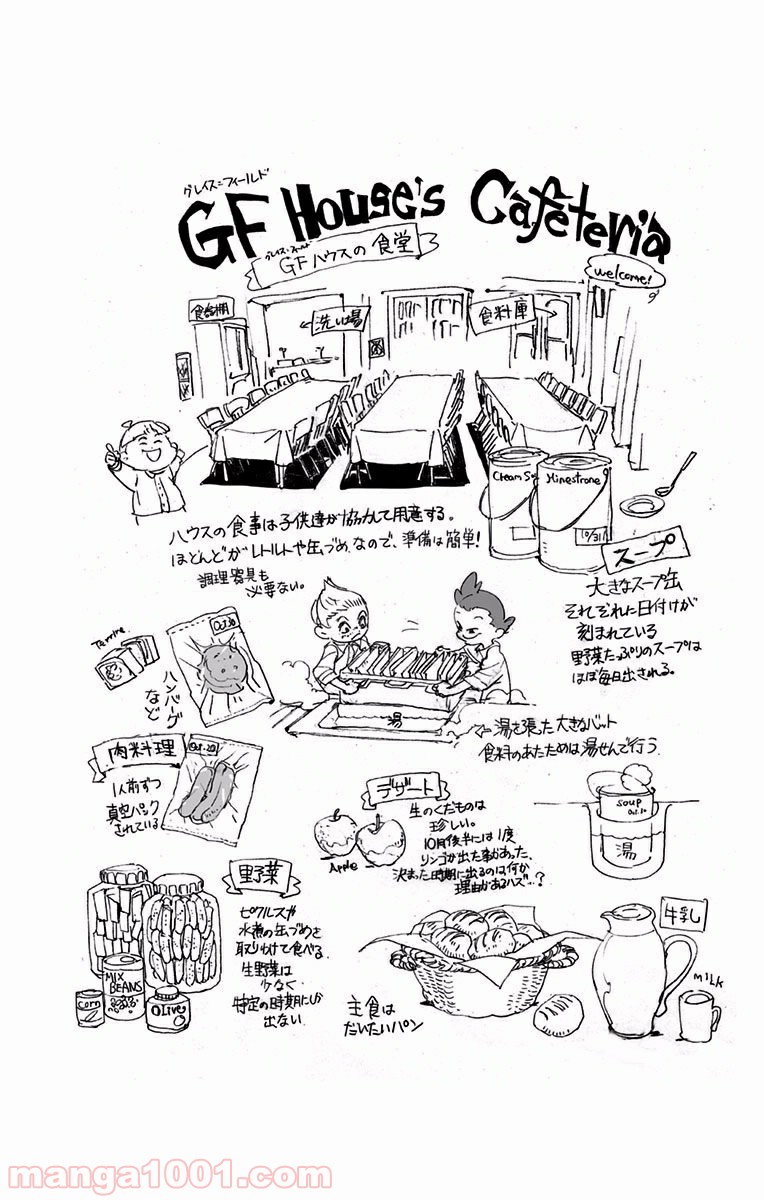 グレイス=フィールド
GF House's Cafeteria
グレイス=フィールド
GFハウスの食堂
welcome!
食器棚
←洗い場
食料庫
→
Cream
Minestrone
10/31
スープ
ハウスの食事は子供達が協力して用意する。
ほとんどがレトルトや缶づめなので、準備は簡単!
調理器具も
必要ない。
大きなスープ缶
それぞれに日付けが
刻まれている
野菜たっぷりのスープは
ほぼ毎日出される。
Terrine
Oct.20
ハンバーグ
など
湯
←湯を張った大きなバット
食料のあたためは湯せんで行う
肉料理
Oct.20
1人前ずつ
真空パック
されている
デザート
Apple
生のくだものは
珍しい。
10月後半には1度
リンゴが出た事があった、
決まった時期に出るのは何か
理由があるハズ…?
soup
Oct.20
湯
野菜
ピクルスや
水煮の缶づめを
取りわけて食べる
生野菜は
少なく
特定の時期にしか
出ない
MIX
BEANS
Corn
Olive
主食は
だいたいパン
牛乳
MILK
manga1001.com